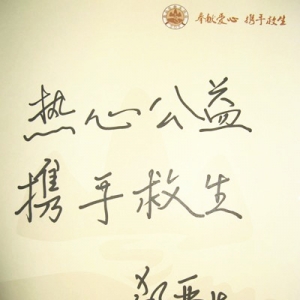 奉献爱心 携手救生
热心公益
携手救生